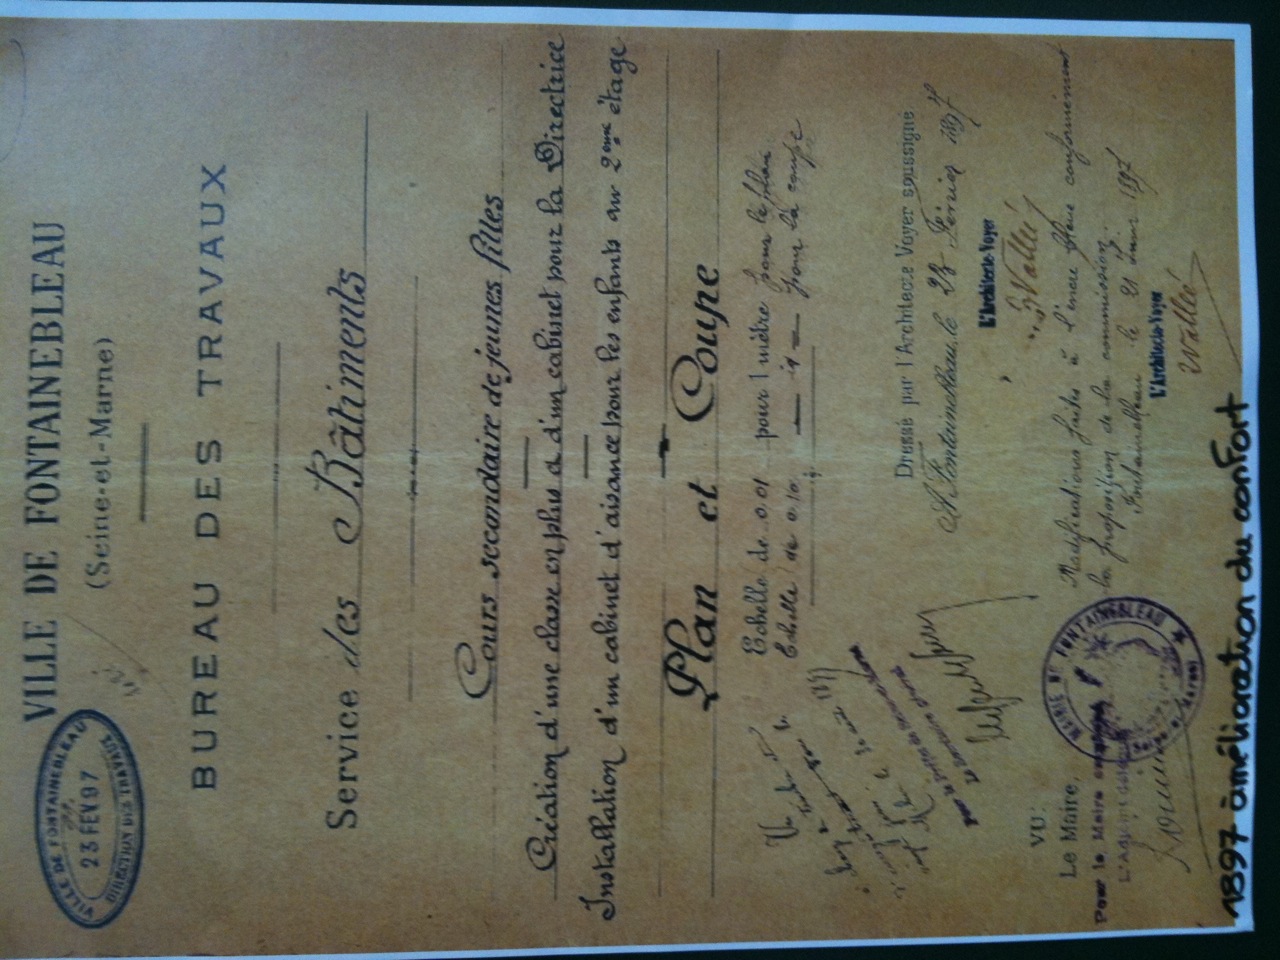 VILLE DE FONTAINEBLEAU
(Seine-et-Marne)
VILLE DE FONTAINEBLEAU
23 FEV 97
DIRECTION DES TRAVAUX
BUREAU DES TRAVAUX
Service des Bâtiments
Cours secondaire de jeunes filles
Création d'une classe en plus & d'un cabinet pour la Directrice
Installation d'un cabinet d'aisance pour les enfants au 2eme étage
Plan et Coupe
Echelle de 0.01 pour 1 mètre pour le plan
Echelle de 0.10 — id — pour la coupe
Dressé par l'Architecte Voyer soussigné
A Fontainebleau, le 23 Février 1897
L'Architecte-Voyer
Vallé
Modifications faites à l'encre bleue conformément
à la proposition de la commission.
Fontainebleau le 21 1897
L'Architecte-Voyer
Vallé
VU:
Le Maire,
Pour le Maire
L'Adjoint
MAIRIE DE FONTAINEBLEAU
1897 amélioration du confort